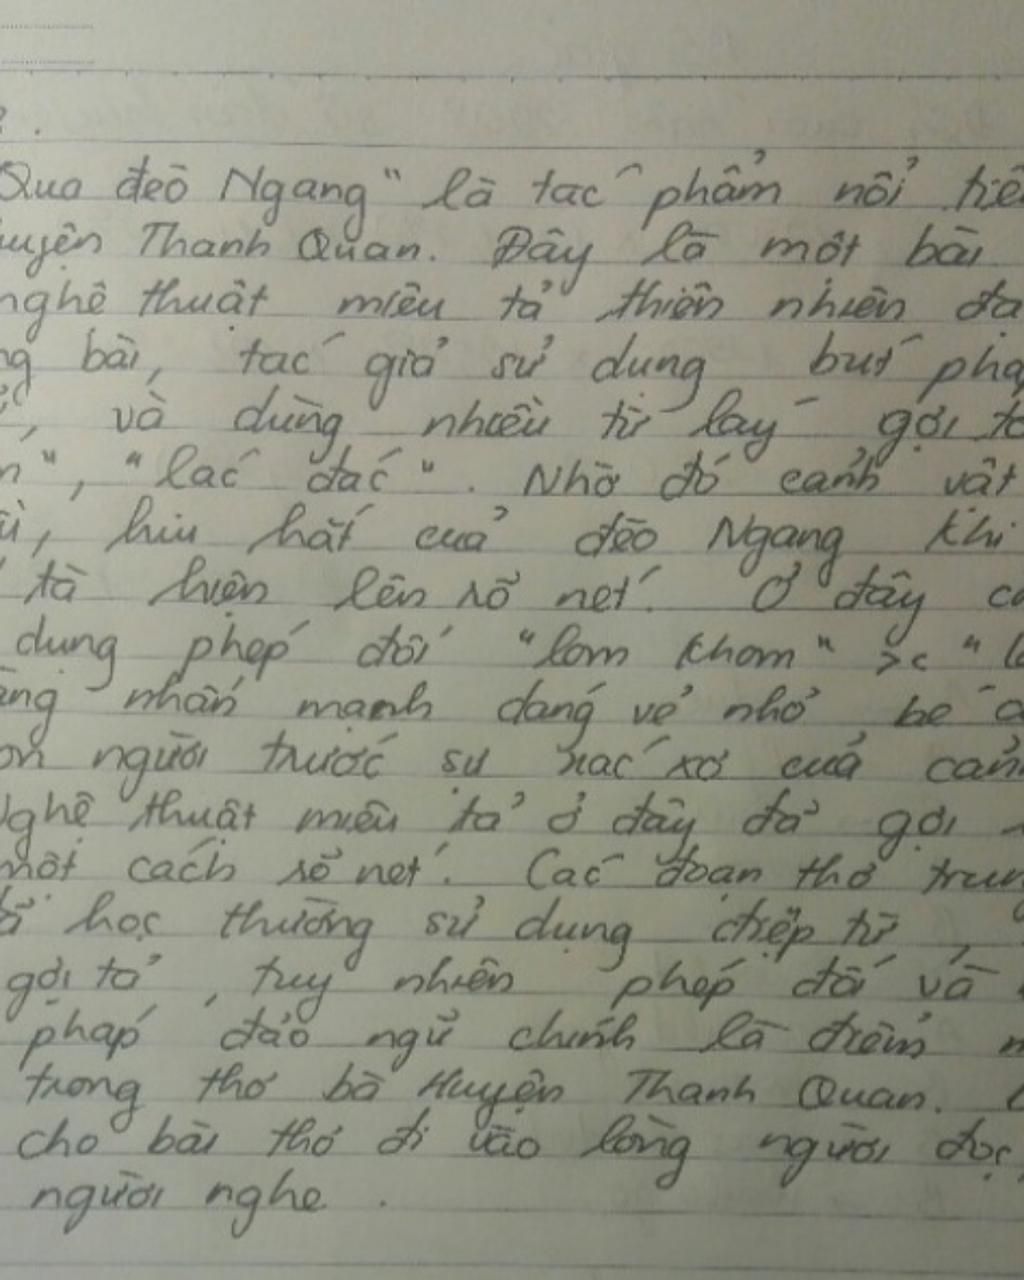 Qua đèo Ngang" là tác phẩm nổi tiế
uyện Thanh Quan. Đây là một bài
nghệ thuật miêu tả thiên nhiên đa
ng bài, tác giả sử dụng bút phá
, và dùng nhiều từ láy gợi tả
n", "lác đác". Nhờ đó cảnh vật
, hiu hắt của đèo Ngang khi
tà hiện lên rõ nét. Ở đây c
dụng phép đối "lom khom" >< "l
ằng nhấn mạnh dáng vẻ nhỏ bé c
on người trước sự xác xơ của cản
Nghệ thuật miêu tả ở đây đã gợi
một cách rõ nét. Các đoạn thơ trun
học thường sử dụng điệp từ,
gợi tả, tuy nhiên phép đối và
pháp đảo ngữ chính là điểm m
trong thơ bà Huyện Thanh Quan.
cho bài thơ đi vào lòng người đọc,
người nghe.